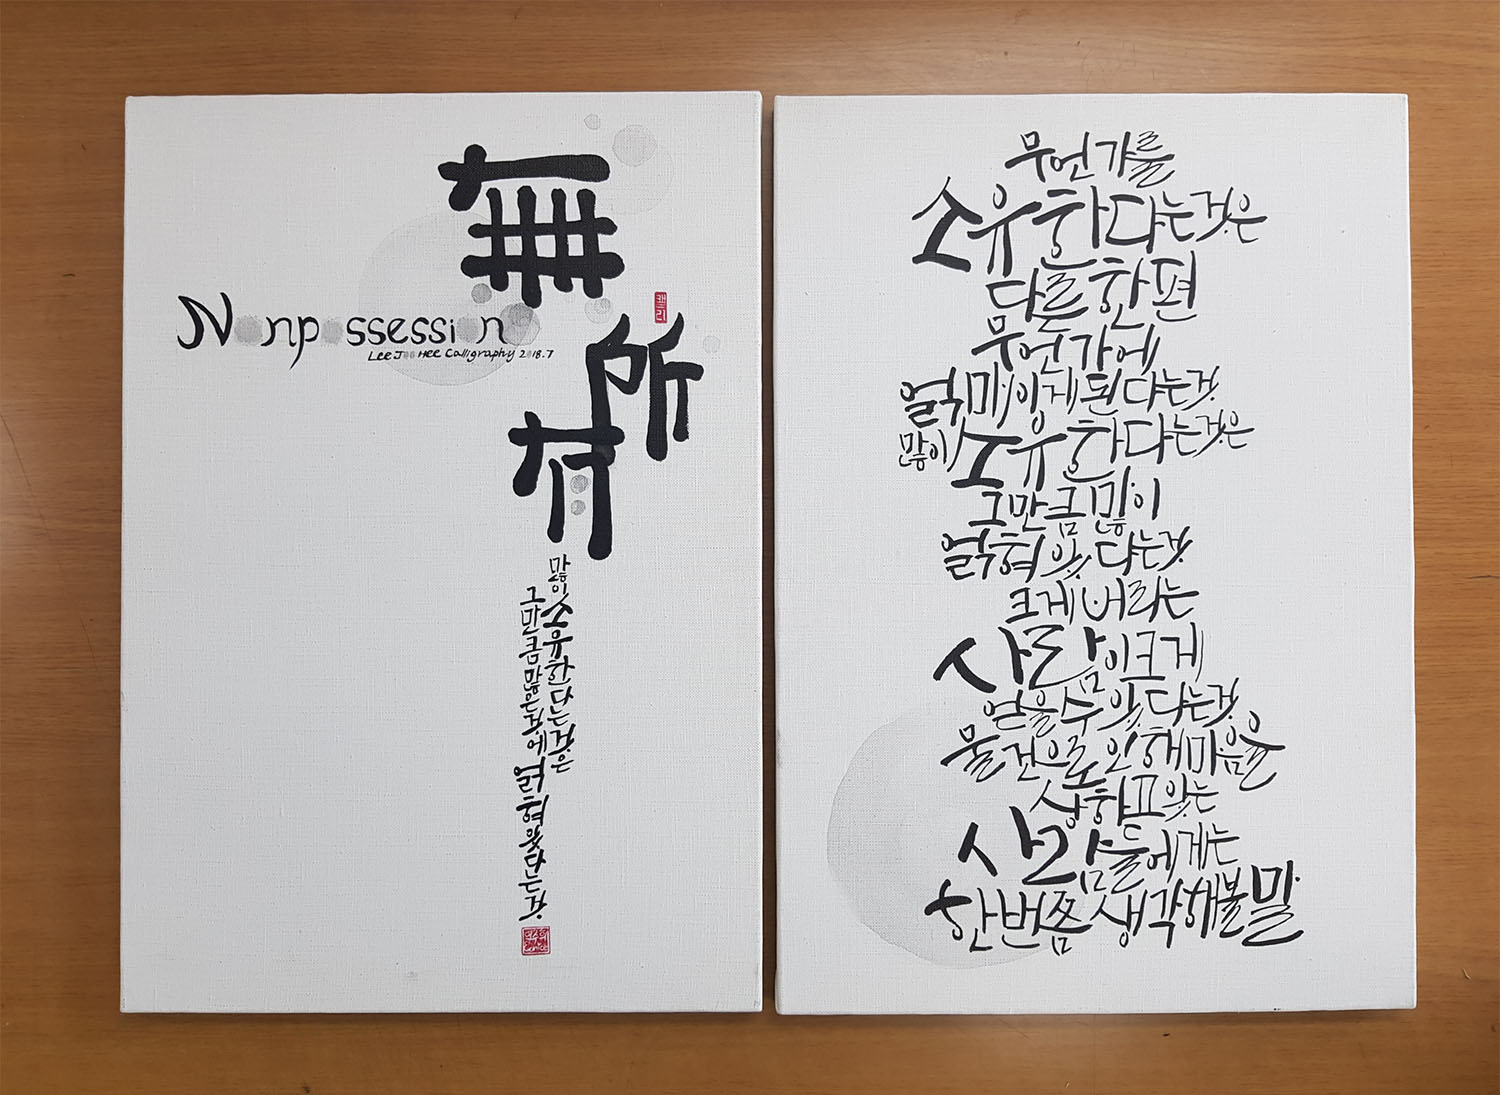 無
所
有
Nonpossession
Lee Joo Hee Calligraphy 2018.7
캘리
많이 소유한다는것은
그만큼 많은것에 얽혀있다는것
무언가를
소유한다는것은
다른한편
무언가에
얽매이게된다는것
많이 소유한다는것은
그만큼많이
얽혀있다는것
크게버리는
사람이크게
얻을수있다는것
물건으로인해마음을
상하고있는
사람들에게는
한번쯤생각해볼말